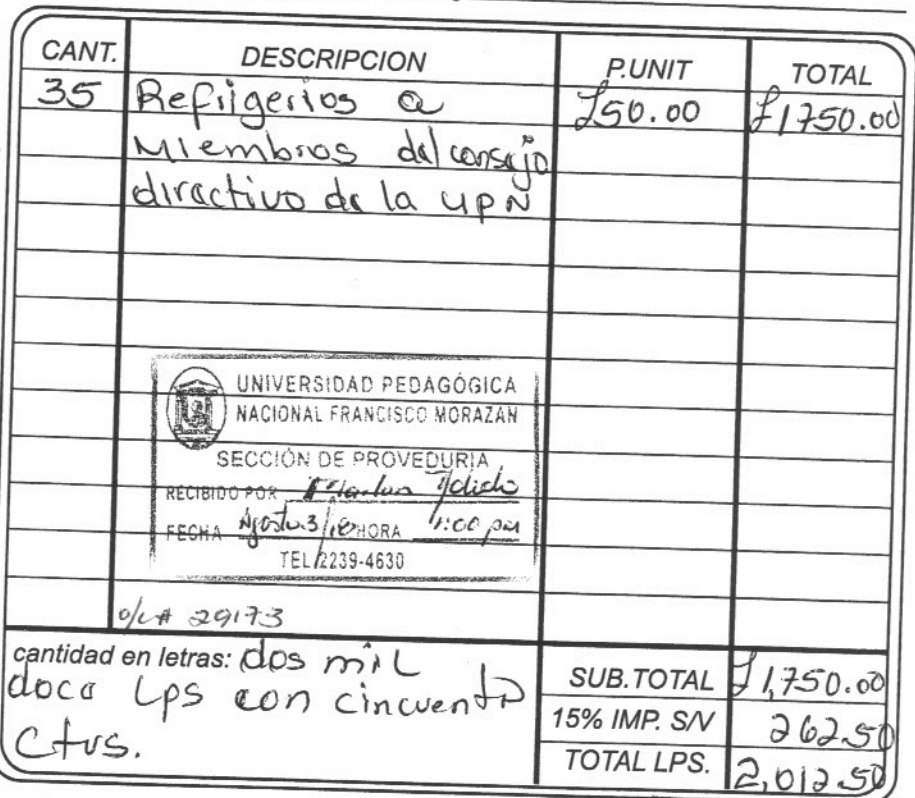 CANT. DESCRIPCION P.UNIT TOTAL
35 Refrigerios a £50.00 £1750.00
Miembros del consejo
directivo de la UPN
UNIVERSIDAD PEDAGÓGICA
NACIONAL FRANCISCO MORAZAN
SECCIÓN DE PROVEDURIA
RECIBIDO POR
FECHA Agosto.3/18 HORA 1:00 pm
TEL/2239-4630
o/c# 29173
cantidad en letras: dos mil
doce Lps con cincuenta
Ctvs.
SUB.TOTAL £1,750.00
15% IMP. S/V 262.50
TOTAL LPS. 2,012.50